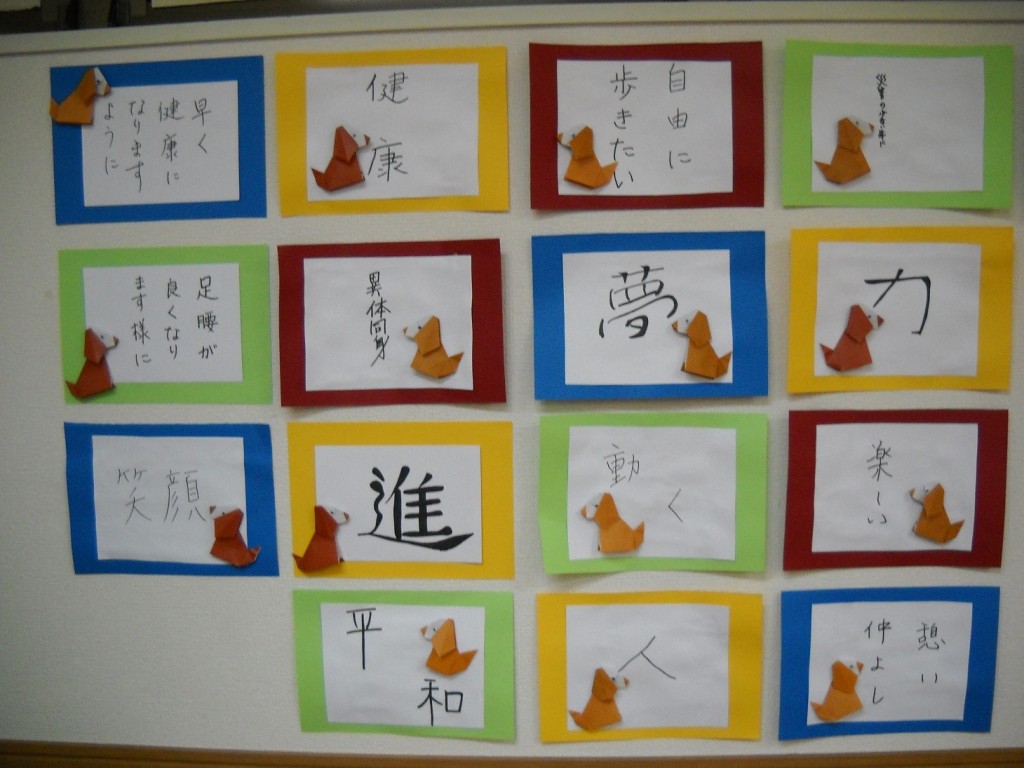 早く
健康に
なります
ように
健康
自由に
歩きたい
災害の少ない年に
足腰が
良くなり
ます様に
異体同身
夢
力
笑顔
進
動く
楽しい
平和
人
憩い
仲よし